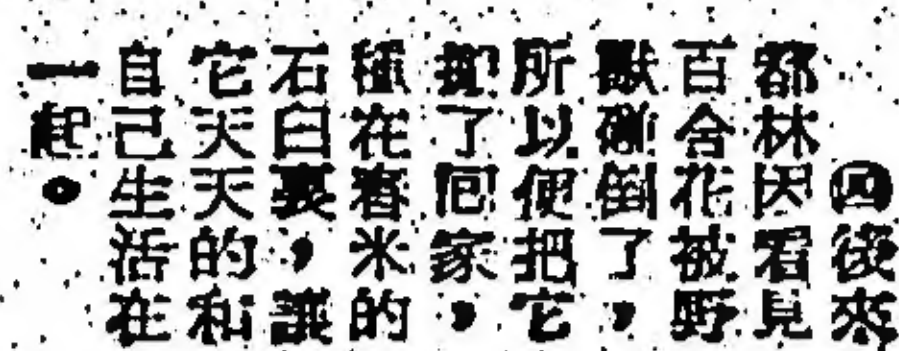 ㊃後來
都林因看見
百合花被野
獸碰倒了，
所以便把它
了回家，
種在舂米的
石臼裏，讓
它天天的和
自己生活在
一起。